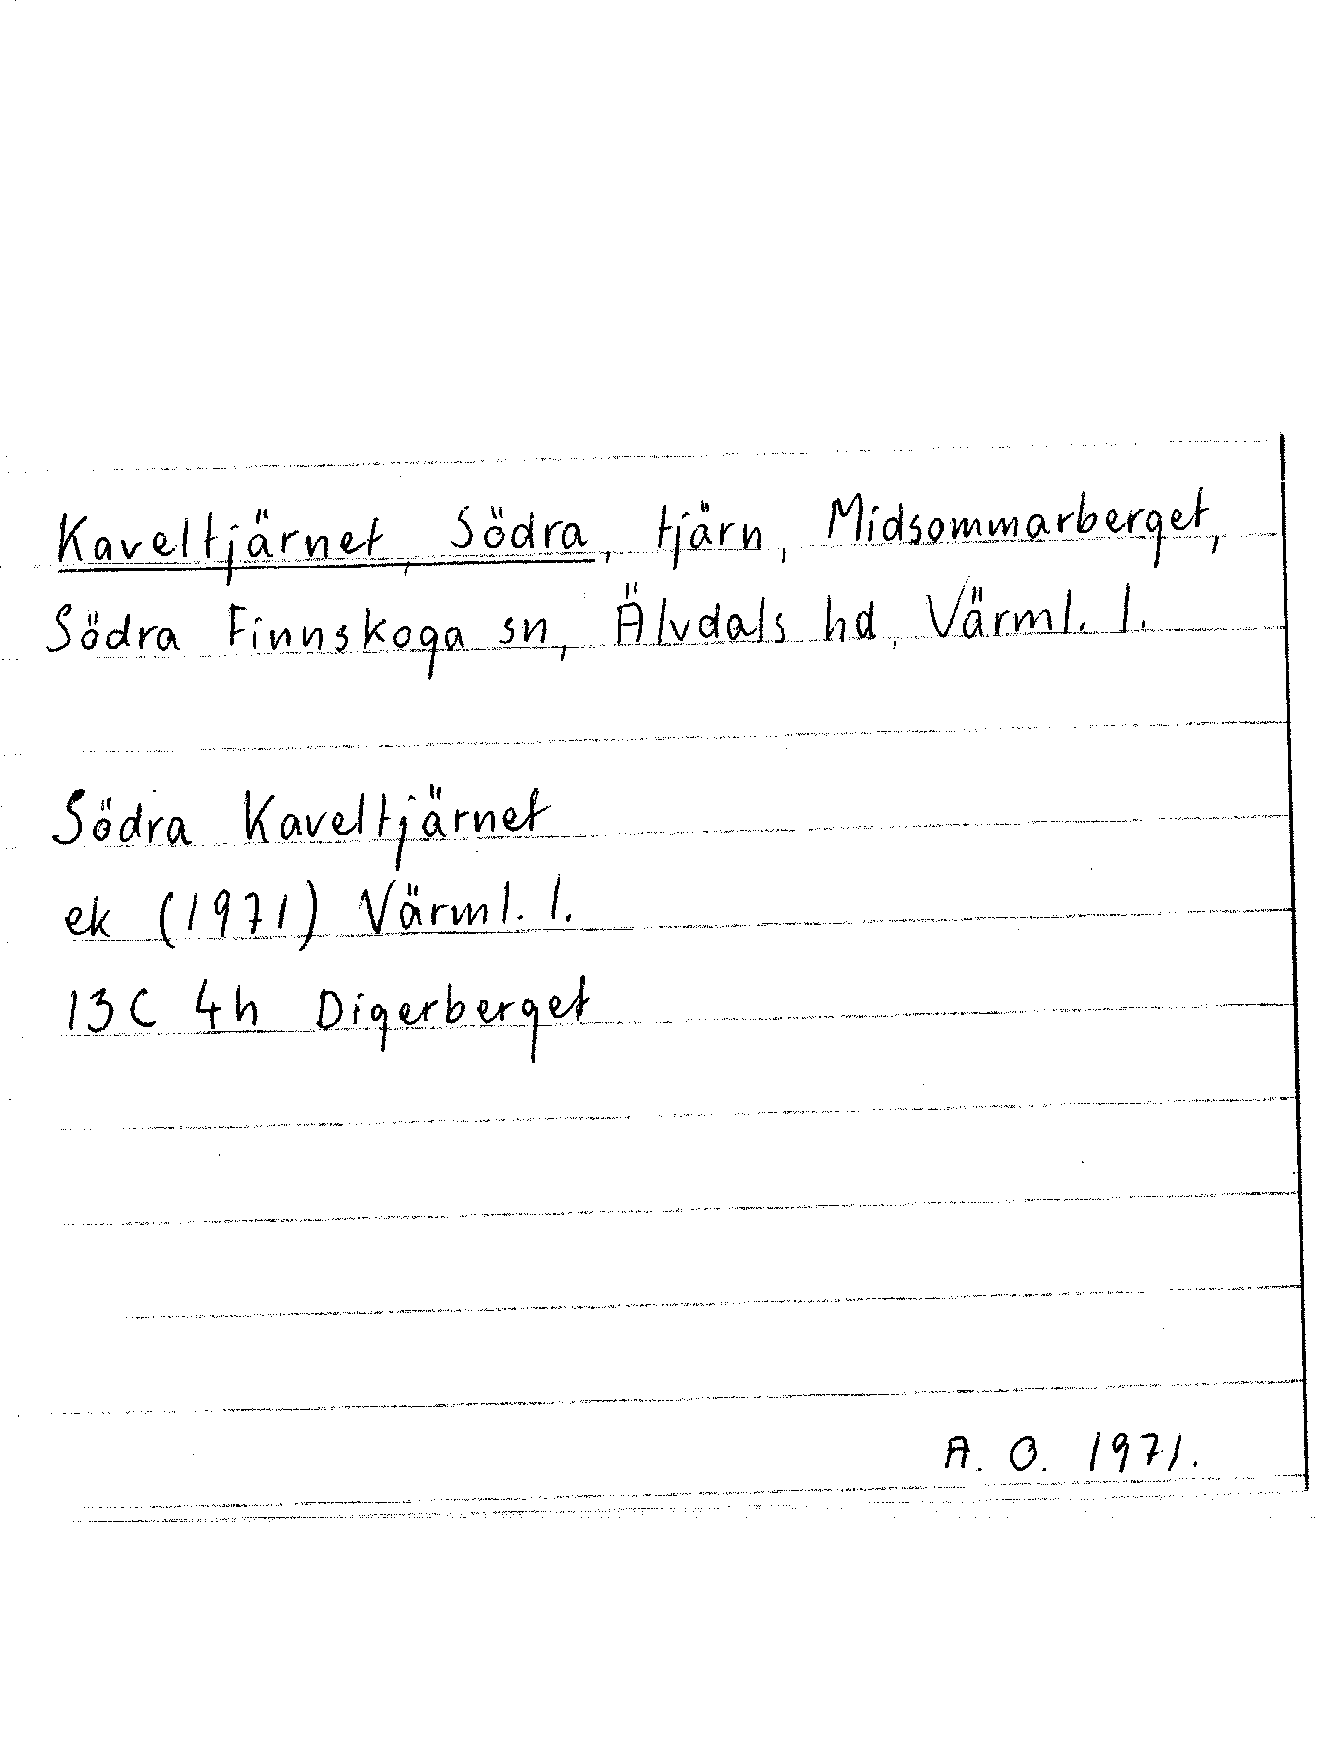 Kaveltjärnet, Södra, tjärn, Midsommarberget,
Södra Finnskoga sn, Älvdals hd, Värml. l.
Södra Kaveltjärnet
ek (1971) Värml. l.
13C 4h Digerberget
A. O. 1971.